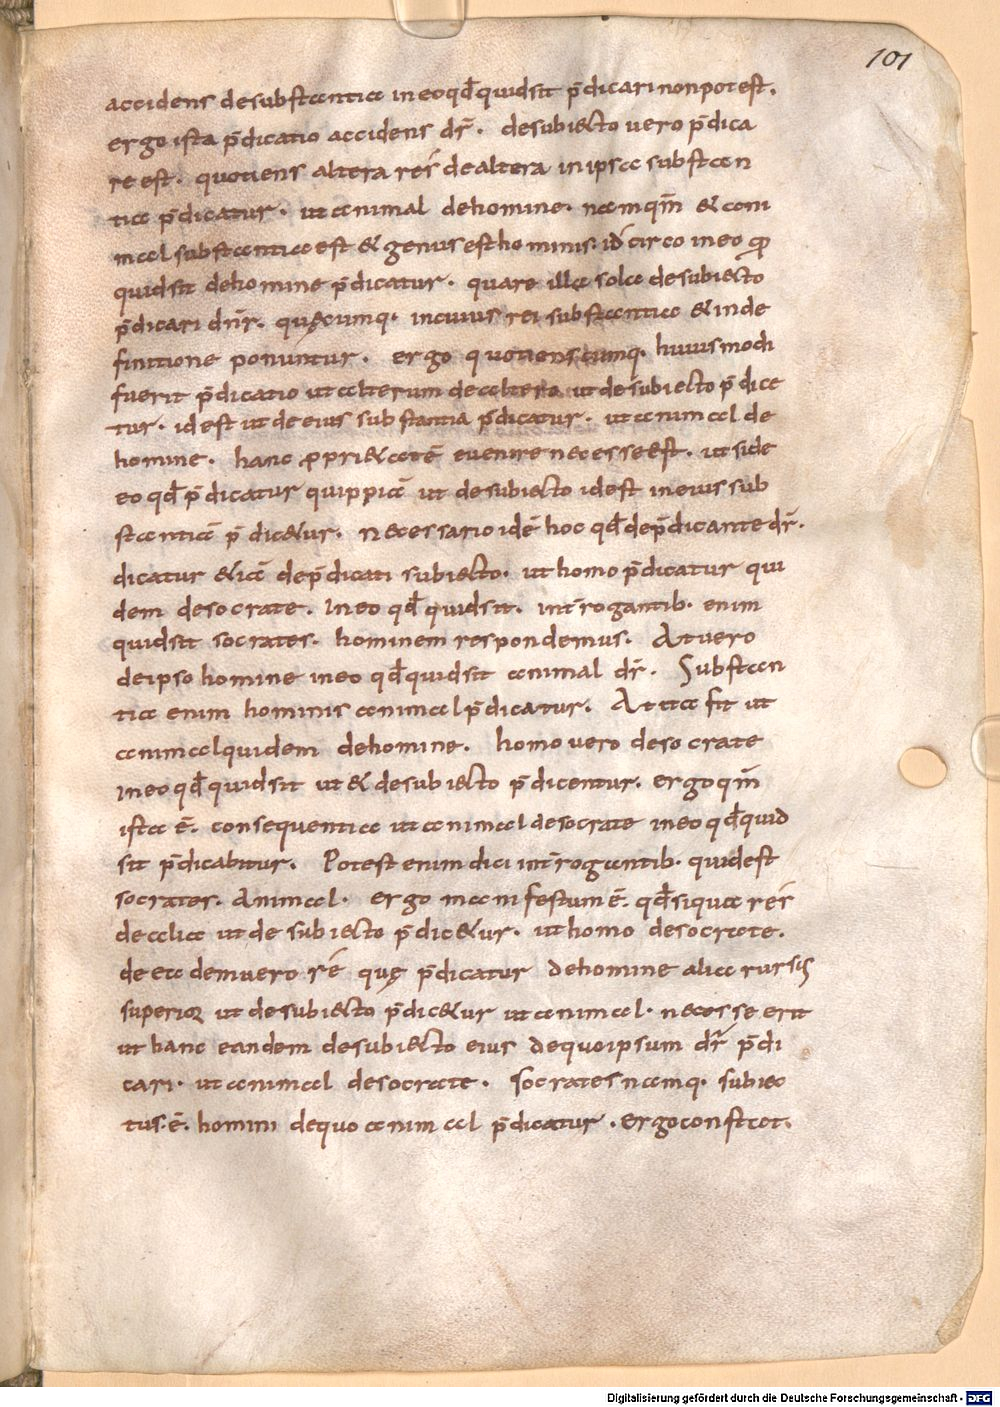 101
accidens desubstantia ineoqđquidsit p̄dicarinonpotest.
ergo ista p̄dicatio accidens dr̄. desubiecto vero p̄dica
re est. quotiens altera res dealtera inipsa substan
tia p̄dicatur. ut animal dehomine. namqm̄ & ani
mal substantia est & genus esthominis. idcirco ineo qđ
quidsit dehomine p̄dicatur. quare illa sola desubiecto
p̄dicari dn̄r. quęcumq. incuius rei substantia & inde
finitione ponuntur. ergo quotienscumq. huiusmodi
fuerit p̄dicatio ut alterum dealtero ut desubiecto p̄dice
tur. idest ut de eius substantia p̄dicatur. ut animal de
homine. hanc p̄pri&atē evenire necesseest. ut side
eo qđ p̄dicatur quippiā ut desubiecto idest ineius sub
stantiā p̄dic&ur. necessario idē hoc qđ dep̄dicante dr̄.
dicatur &iā dep̄dicati subiecto. ut homo p̄dicatur qui
dem desocrate. ineo qđ quidsit. int̄rogantib. enim
quidsit socrates. hominem respondemus. At vero
deipso homine ineo qđquidsit animal dr̄. Substan
tia enim hominis animal p̄dicatur. At ita fit ut
animalquidem dehomine. homo vero desocrate
ineo qđ quidsit ut & desubiecto p̄dicentur. ergo qm̄
ista ē. consequentia ut animal desocrate ineo qđquid
sit p̄dicabitur. Potest enim dici int̄rogantib. quidest
socrates. Animal. ergo manifestum ē. qđsiqua res
dealia ut de subiecto p̄dic&ur. ut homo desocrate.
de ea demuero rē quę p̄dicatur dehomine alia rursus
superior ut desubiecto p̄dic&ur ut animal. necesse erit
ut hanc eandem desubiecto eius dequoipsum dr̄ p̄di
cari. ut animal desocrate. socratesnamq. subiec
tus. ē. homini dequo animal p̄dicatur. ergoconstat.
Digitalisierung gefördert durch die Deutsche Forschungsgemeinschaft - DFG